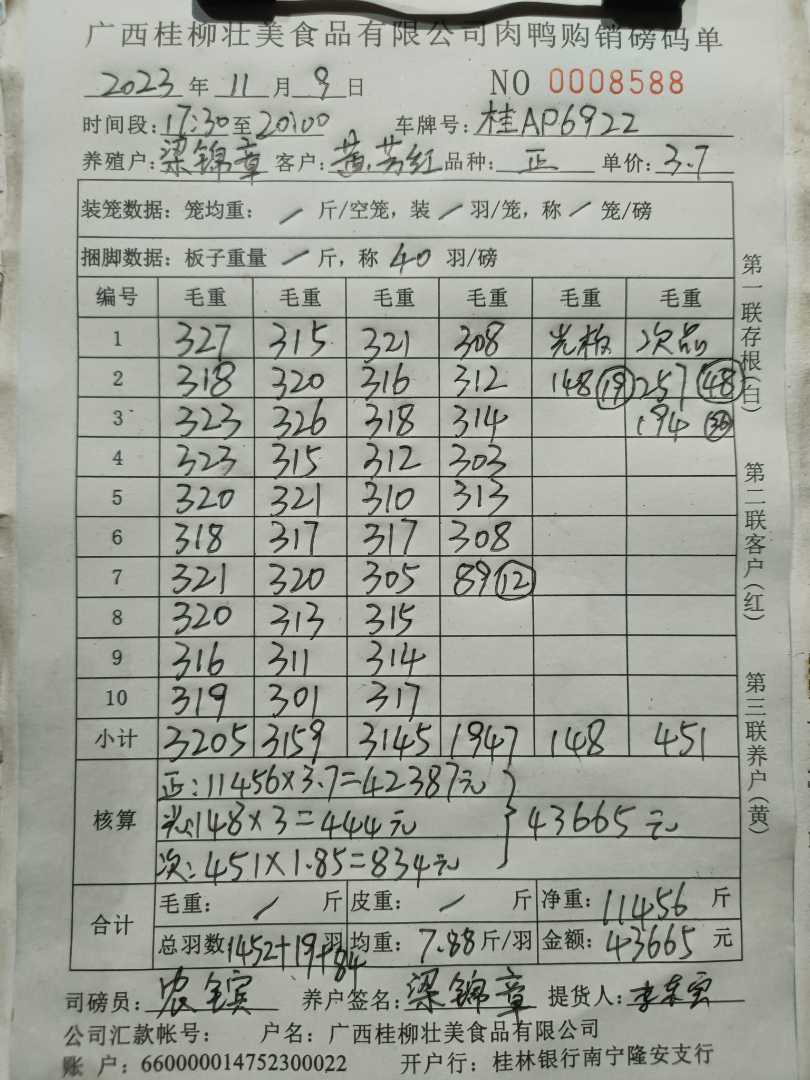 广西桂柳壮美食品有限公司肉鸭购销磅码单
2023 年 11 月 9 日 NO 0008588
时间段: 17:30 至 20:00 车牌号: 桂AP6922
养殖户: 梁锦章 客户: 黄芬红 品种: 正 单价: 3.7
装笼数据: 笼均重: / 斤/空笼, 装 / 羽/笼, 称 / 笼/磅
捆脚数据: 板子重量 / 斤, 称 40 羽/磅
编号 毛重 毛重 毛重 毛重 毛重 毛重
1 327 315 321 308 光板 次品
2 318 320 316 312 148 19 257 48
3 323 326 318 314 194 36
4 323 315 312 303
5 320 321 310 313
6 318 317 317 308
7 321 320 305 89 12
8 320 313 315
9 316 311 314
10 319 301 317
小计 3205 3159 3145 1947 148 451
核算 正: 11456×3.7=42387元
光:148×3=444元 43665元
次:451×1.85=834元
合计 毛重: / 斤 皮重: / 斤 净重: 11456 斤
总羽数 1452+19+84 羽 均重: 7.88 斤/羽 金额: 43665 元
司磅员: 农 养户签名: 梁锦章 提货人: 李
公司汇款帐号: 户名: 广西桂柳壮美食品有限公司
账 户: 660000014752300022 开户行: 桂林银行南宁隆安支行
第一联存根(白)
第二联客户(红)
第三联养户(黄)